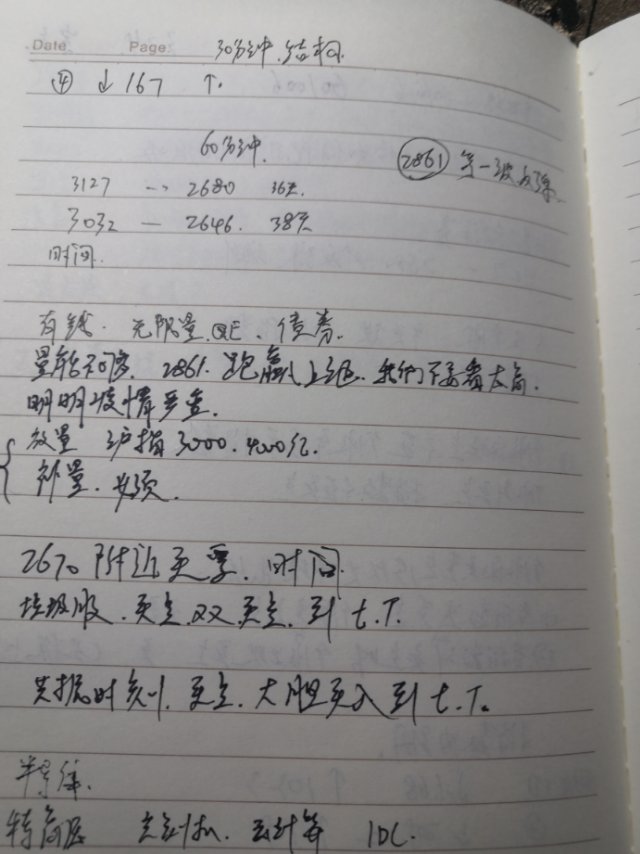 Date Page: 30分钟.结构.
④ ↓167 ↑.
60分钟.
2861 第一波反弹.
3127 -> 2680 36天.
3032 — 2646. 38天
时间.
有钱. 无限量.QE. 债券.
量能不够. 2861. 上证. 我们不要看太高.
明明疫情严重.
放量 沪指3000.4000亿.
补量. 必须.
2670 附近 更买. 时间
垃圾股. 买点. 双买点. 到 t.T.
共振时刻. 买点. 大胆买入到 t.T.
半导体.
特高压 云计算 IDC.